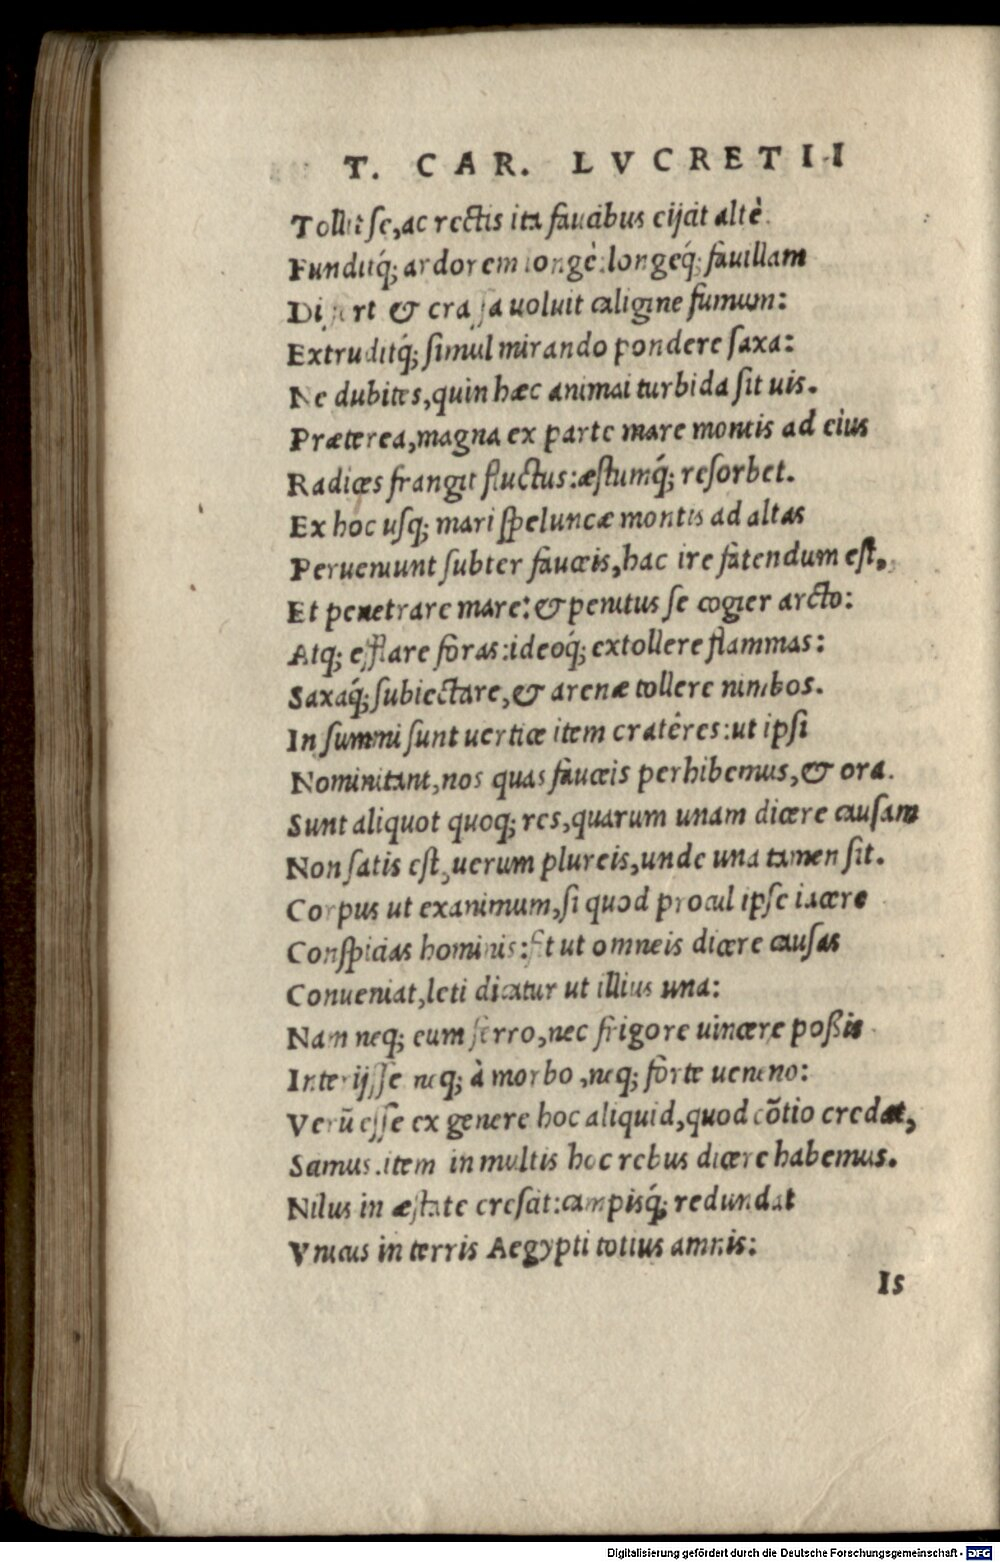 T. CAR. LVCRETII
Tollit se, ac rectis ita faucibus eijcit altè.
Funditq́; ardorem longè: longeq́; fauillam
Differt & crassa uoluit caligine fumum:
Extruditq́; simul mirando pondere saxa:
Ne dubites, quin hæc animai turbida sit uis.
Præterea, magna ex parte mare montis ad eius
Radices frangit fluctus: æstumq́; resorbet.
Ex hoc usq; mari speluncæ montis ad altas
Perueniunt subter fauceis, hac ire fatendum est,
Et penetrare mare: & penitus se cogier arcto:
Atq; efflare foras: ideoq́; extollere flammas:
Saxaq́; subiectare, & arenæ tollere nimbos.
In summi sunt uertice item cratêres: ut ipsi
Nominitant, nos quas fauceis perhibemus, & ora.
Sunt aliquot quoq; res, quarum unam dicere causam
Non satis est, uerum plureis, unde una tamen sit.
Corpus ut exanimum, si quod procul ipse iacere
Conspicias hominis: fit ut omneis dicere causas
Conueniat, leti dicatur ut illius una:
Nam neq; eum ferro, nec frigore uincere poßis
Interijsse neq; à morbo, neq; forte ueneno:
Verũ esse ex genere hoc aliquid, quod cõtio credat,
Samus. item in multis hoc rebus dicere habemus.
Nilus in æstate crescit: campisq́; redundat
Vnicus in terris Aegypti totius amnis:
Is
Digitalisierung gefördert durch die Deutsche Forschungsgemeinschaft - DFG